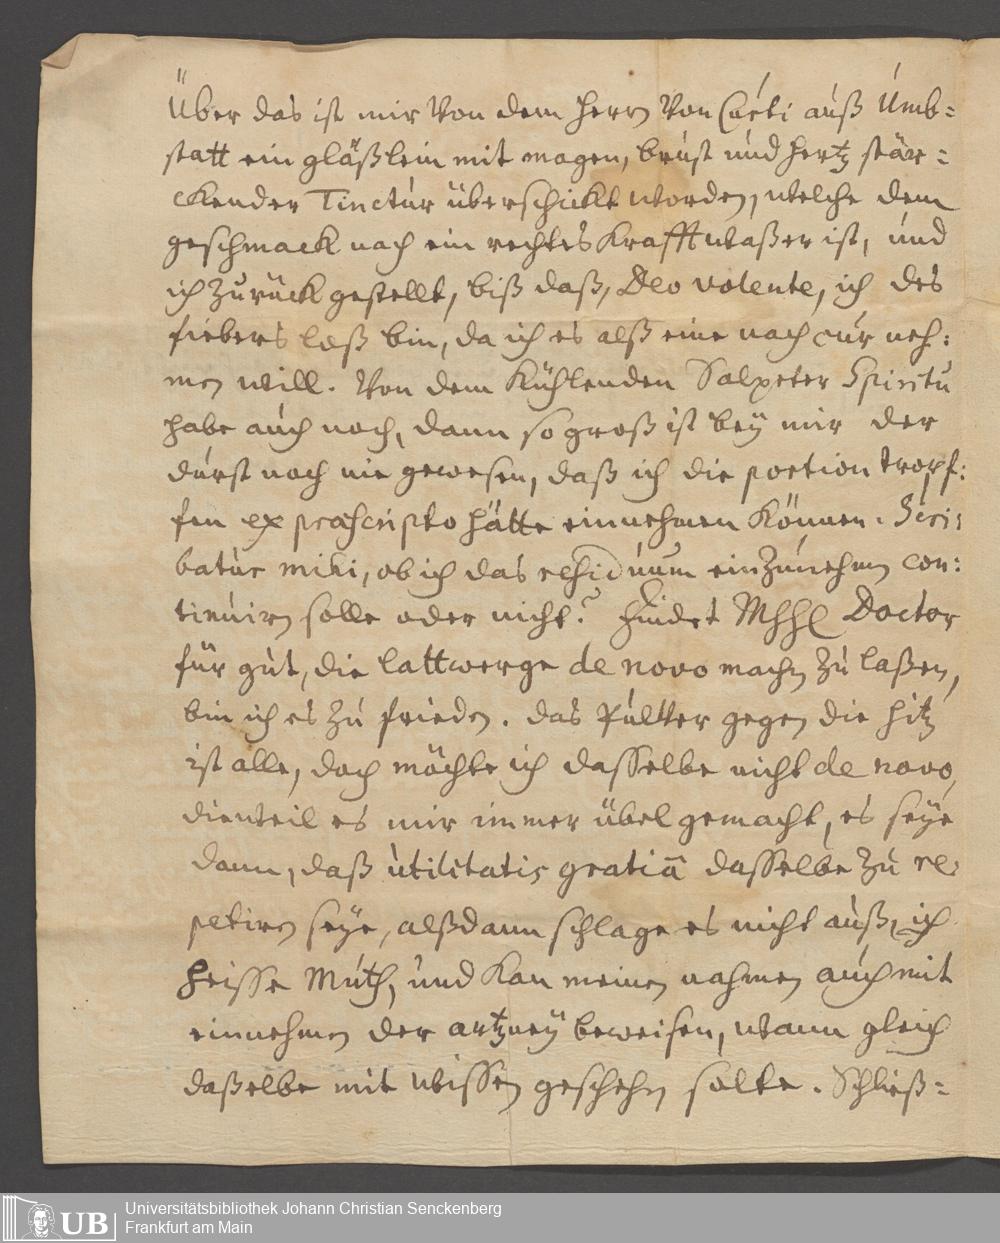 Über das ist mir Von dem Herrn Von Curti auß Umb=
statt ein gläßlein mit magen, brust und Hertz stär=
ckender Tinctur überschickt worden, welche dem
geschmack nach ein rechtes Krafftwaßer ist, und
ich Zurück gestellt, biß daß, Deo volente, ich des
fiebers loß bin, da ich es alß eine nach cur neh=
men will. Von dem Kühlenden Salpeter Spiritu
habe auch noch, dann so groß ist beÿ mir der
durst noch nie gewesen, daß ich die portion tropf=
fen ex præscripto hätte einnehmen Können. Scri=
batur mihi, ob ich das residuum einZunehmen con=
tinuiren solle oder nicht? Findet MhhE Doctor
für gut, die lattwerge de novo machen Zu laßen,
bin ich es Zu frieden. das Pulver gegen die Hitz
ist alle, doch möchte ich dasselbe nicht de novo,
dienteil es mir immer übel gemacht, es seÿe
dann, daß utilitatis gratiâ dasselbe Zu re=
petiren seÿe, alßdann schlage es nicht auß, ich
heisse Muth, und Kan meinen nahmen auch mit
einnehmen der artzneÿ beweisen, wann gleich
daßelbe mit wissen geschehen solte. Schließ=
UB
Universitätsbibliothek Johann Christian Senckenberg
Frankfurt am Main